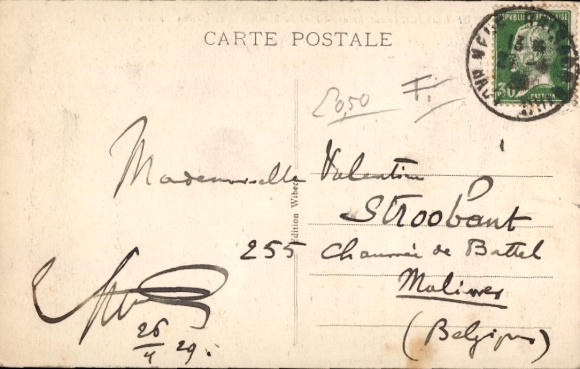 CARTE POSTALE
RÉPUBLIQUE FRANÇAISE
30
20,50 F.
Mademoiselle Valentine
Stroobant
255 Chaussée de Battel
Malines
(Belgique)
26/4 29.
Edition Wibec